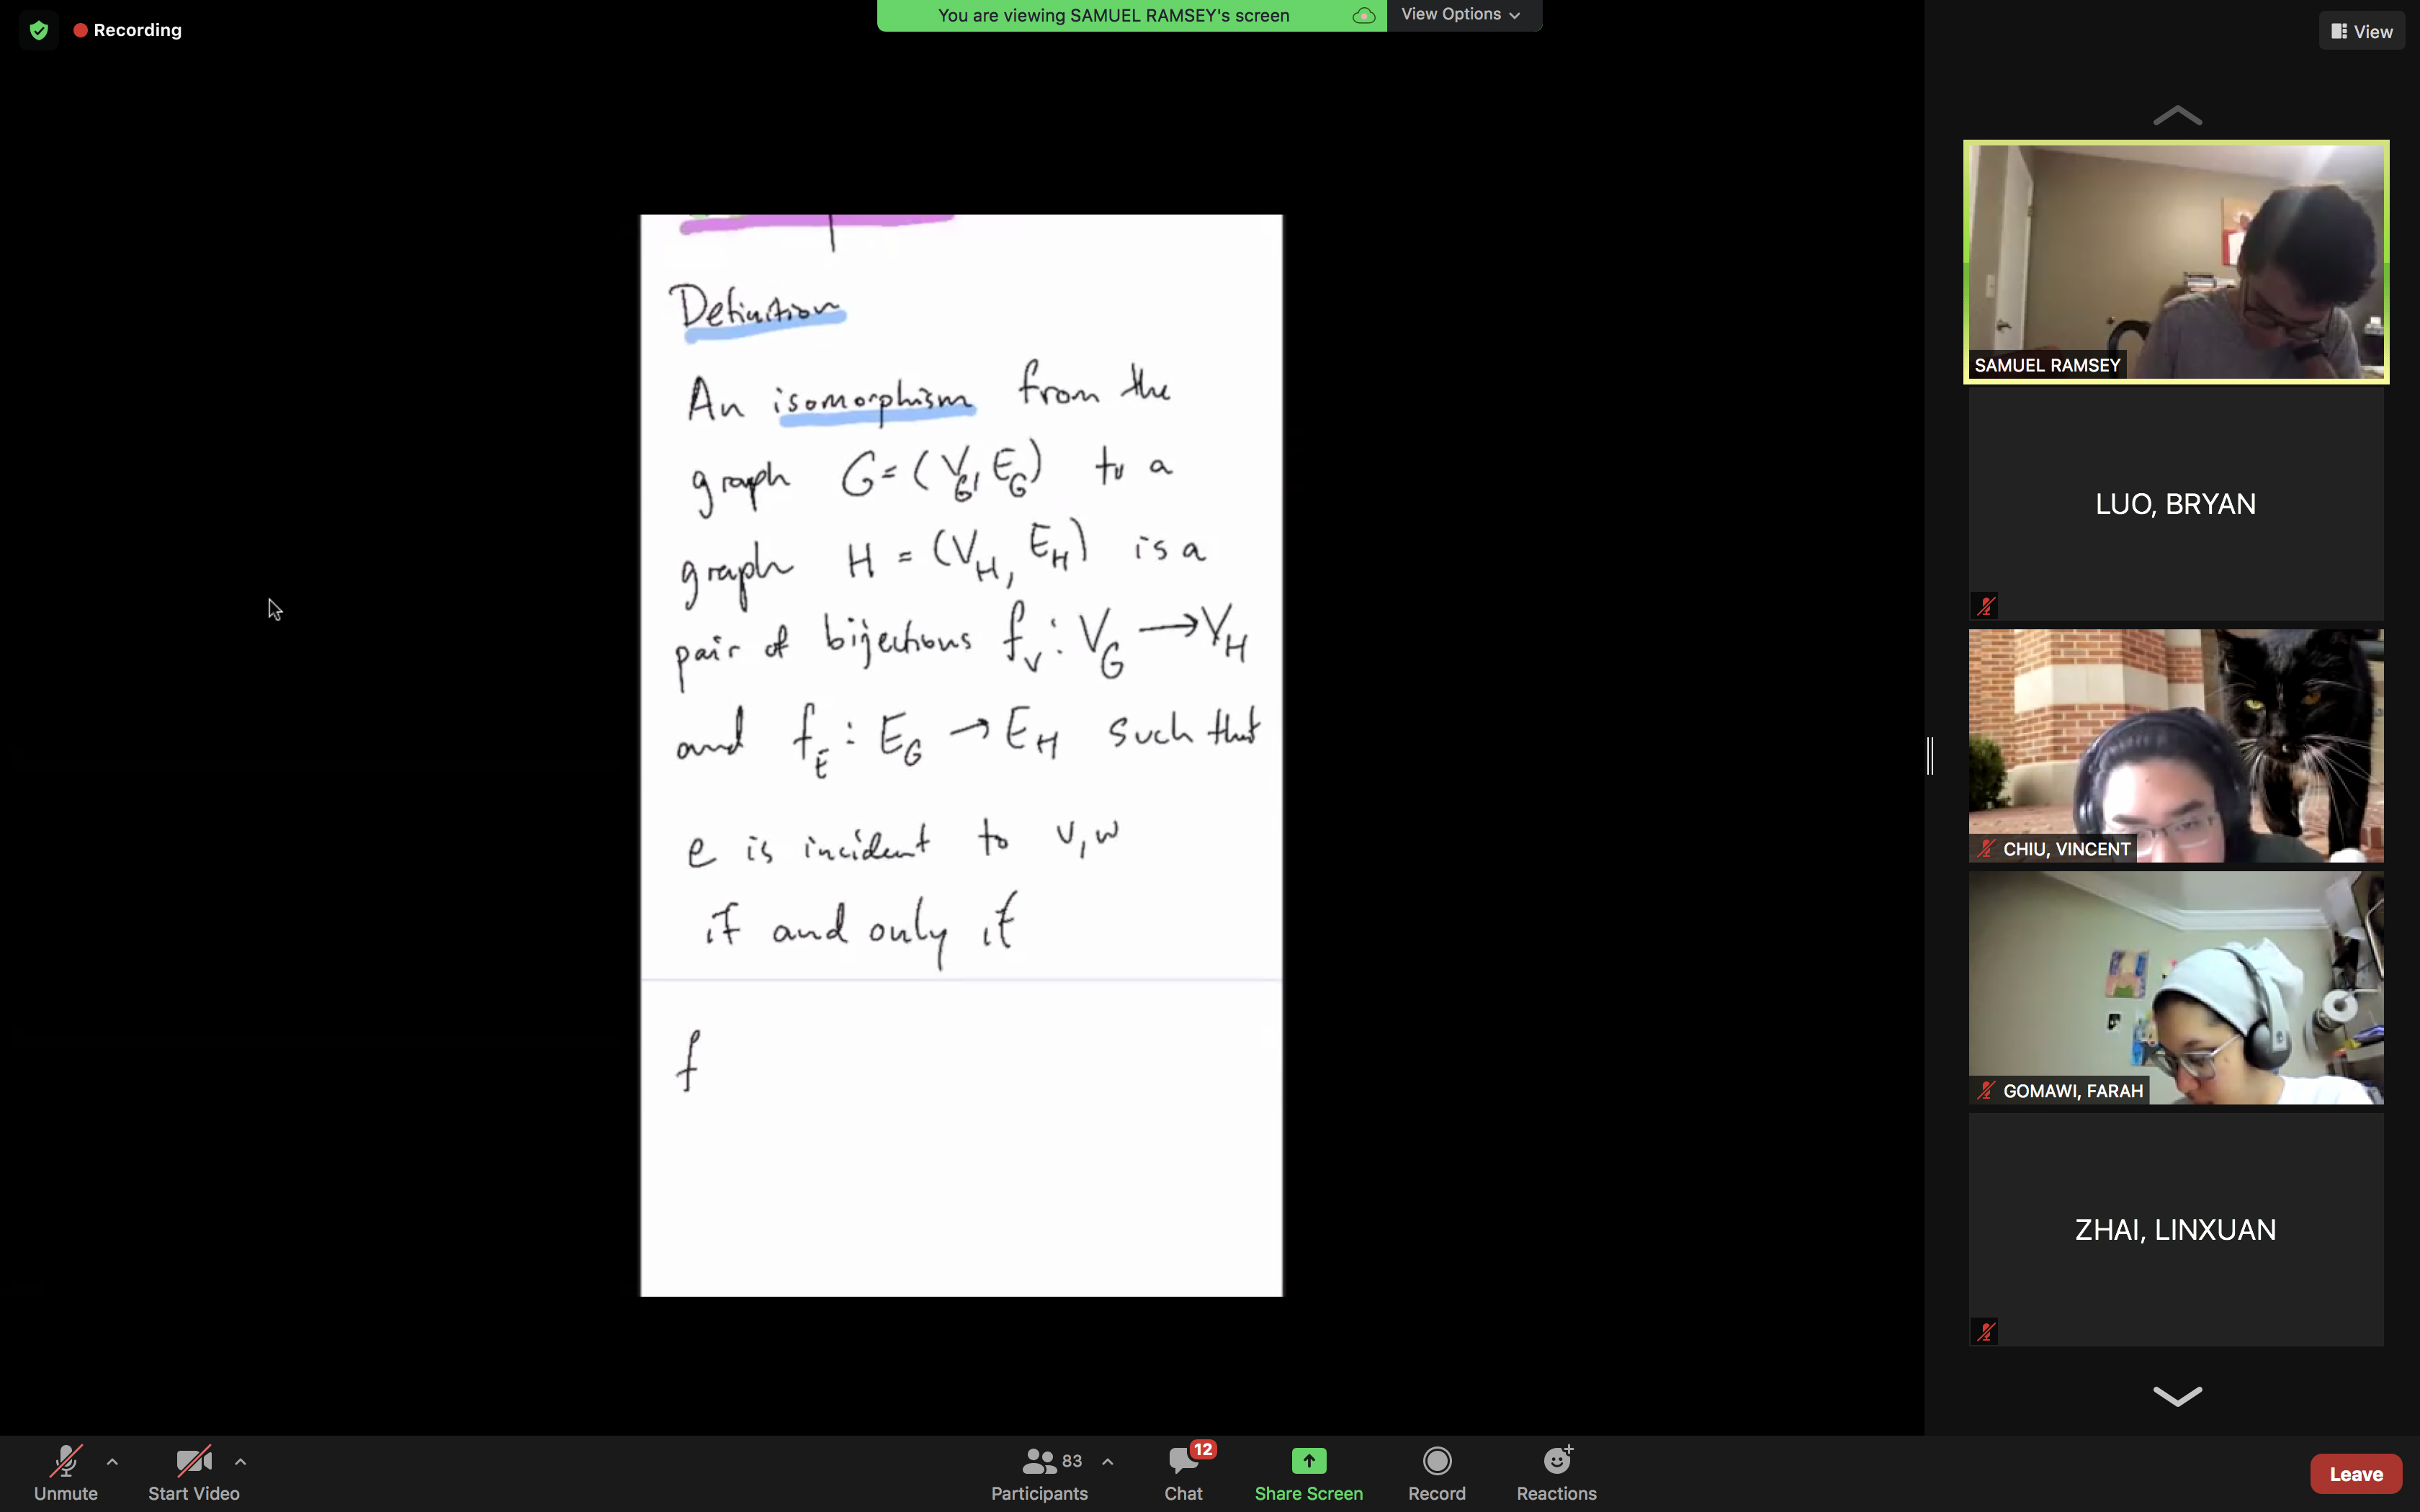 Recording
You are viewing SAMUEL RAMSEY's screen
View Options
View
Definition
An isomorphism from the
graph G = (V_G, E_G) to a
graph H = (V_H, E_H) is a
pair of bijections f_V : V_G → V_H
and f_E : E_G → E_H such that
e is incident to v, w
if and only if
f
SAMUEL RAMSEY
LUO, BRYAN
CHIU, VINCENT
GOMAWI, FARAH
ZHAI, LINXUAN
Unmute
Start Video
83
Participants
12
Chat
Share Screen
Record
Reactions
Leave